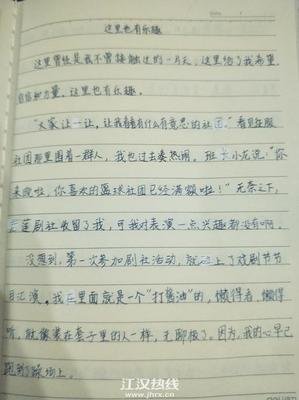 这里也有乐趣
这里曾经是我不曾接触过的一片天,这里给了我希望,
自信和力量,这里也有乐趣。
"大家让一让,让我看看有什么有意思的社团。"看见在报
社团那里围着一群人,我也过去凑热闹。班长小龙说:"你
来晚啦,你喜欢的篮球社团已经满额啦!"无奈之下,
剧社收留了我,可我对表演一点兴趣都没有啊。
没想到,第一次参加剧社活动,就上了戏剧节节
目汇演。我在里面就是一个"打酱油"的,懒得看,懒得
听,就像装在套子里的人一样,无聊极了。因为,我的心早已
跑到了操场上。
江汉热线
www.jhrx.cn